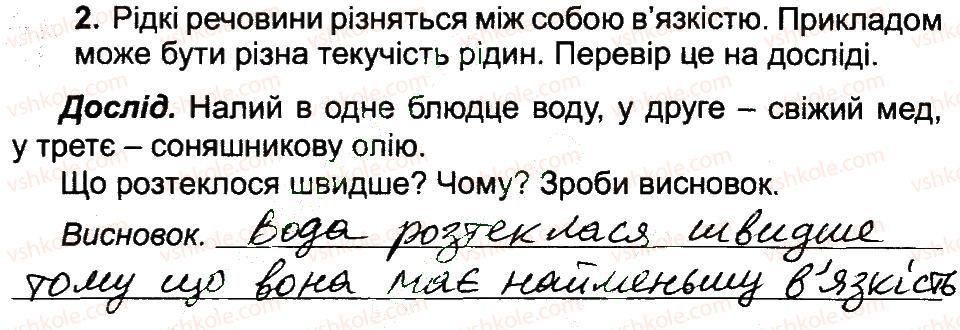 2. Рідкі речовини різняться між собою в’язкістю. Прикладом
може бути різна текучість рідин. Перевір це на досліді.
Дослід. Налий в одне блюдце воду, у друге – свіжий мед,
у третє – соняшникову олію.
Що розтеклося швидше? Чому? Зроби висновок.
Висновок. Вода розтеклася швидше
тому що вона має найменьшу в’язкість